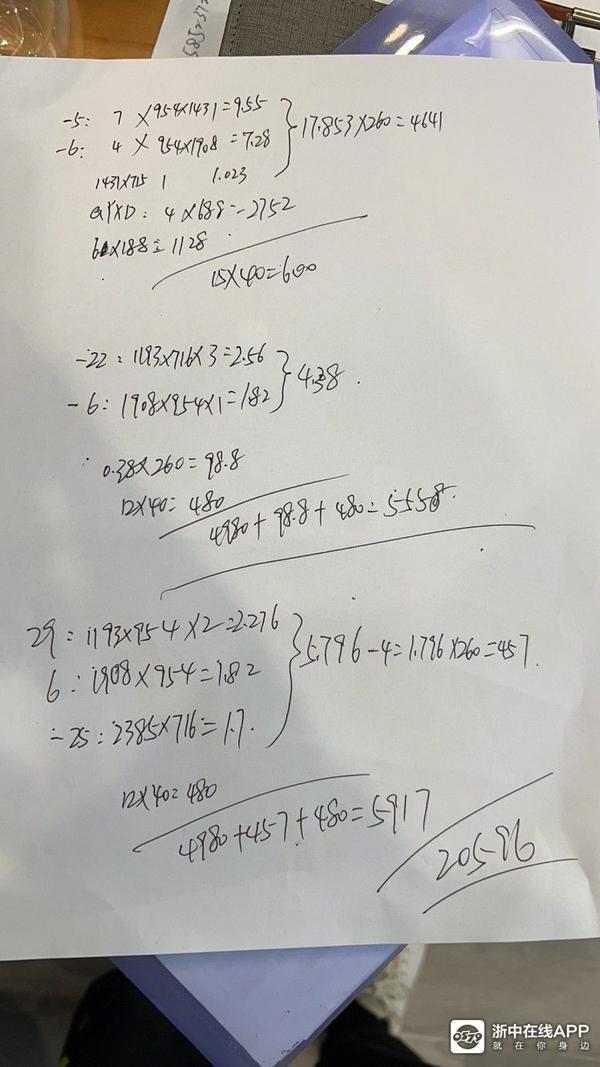 -5: 7 ×954×1431=9.55
-6: 4 × 954×1908=7.28
17.853×260=4641
1431×715 1 1.023
QYXD: 4×688=2752
6×188=1128
15×40=600
-22: 1193×716×3=2.56
-6: 1908×954×1=1.82
4.38
0.38×260=98.8
12×40=480
4980+98.8+480=5558
29: 1193×954×2=2.276
6: 1908×954=1.82
5.796-4=1.796×260=457
-25: 2385×716=1.7
12×40=480
4980+457+480=5917
20596
浙中在线APP
就在你身边